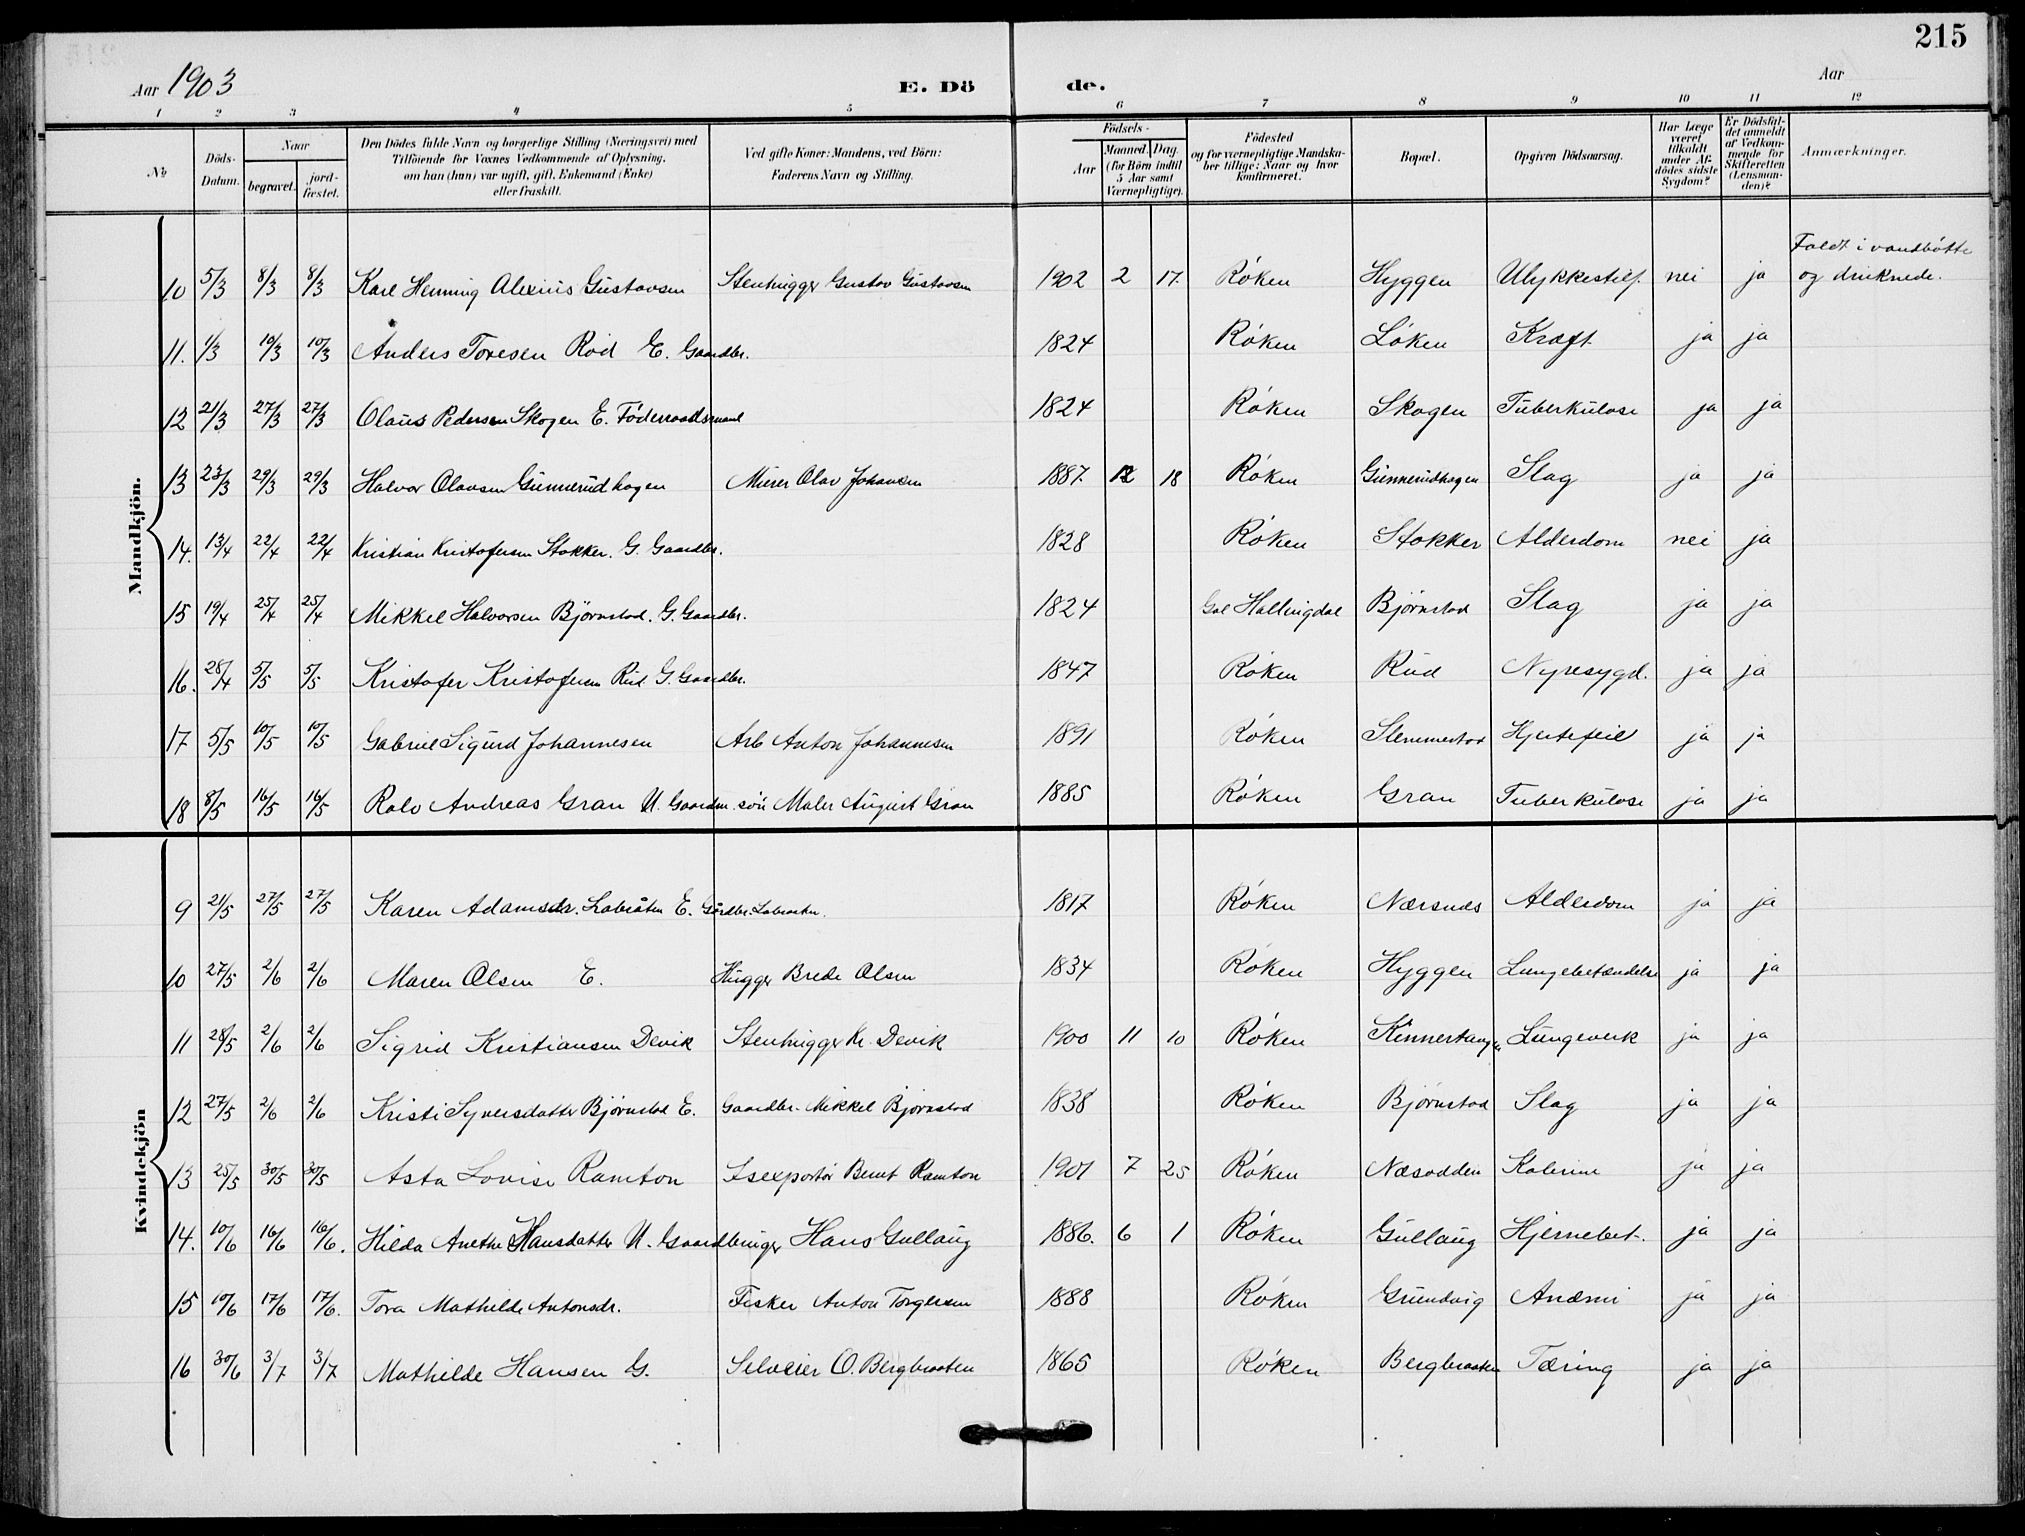 215
Aar 1903 E. Dö de. Aar
1 2 3 4 5 6 7 8 9 10 11 12
№ Döds-Datum. Naar begravet. jord-fæstet. Den Dödes fulde Navn og borgerlige Stilling (Næringsvei) med Tilföiende for Voxnes Vedkommende af Oplysning, om han (hun) var ugift, gift, Enkemand (Enke) eller fraskilt. Ved gifte Koner: Mandens, ved Börn: Faderens Navn og Stilling. Födsels- Aar Maaned. Dag. (for Börn indtil 5 Aar samt Værnepligtige). Födested og for værnepligtige Mandska-ber tillige: Naar og hvor konfirmeret. Bopæl. Opgiven Dödsaarsag. Har Læge været tilkaldt under Af-dödes sidste Sygdom? Er Dödsfal-det anmeldt af Vedkom-mende for Skifteretten (Lensman-den)? Anmærkninger.
Mandkjön.
10 5/3 8/3 8/3 Karl Henning Alexius Gustavsen Stenhugger Gustav Gustavsen 1902 2 17. Röken Hyggen Ulykkestilf. nei ja Faldt i vandbötte og druknede.
11. 1/3 10/3 10/3 Anders Toresen Rød E. Gaardbr. 1824 Röken Löken Kræft ja ja
12 21/3 27/3 27/3 Olaus Pedersen Skogen E. Föderraadsmand 1824 Röken Skogen Tuberkulose ja ja
13 23/3 29/3 29/3 Halvor Olavsen Gunnerudhagen Murer Olav Johansen 1887. 12 18 Röken Gunnerudhagen Slag ja ja
14. 13/4 22/4 22/4 Kristian Kristofersen Stokker. G. Gaardbr. 1828 Röken Stokker Alderdom nei ja
15 19/4 25/4 25/4 Mikkel Halvorsen Björnstad. G. Gaardbr. 1824 Gol Hallingdal Björnstad Slag ja ja
16. 28/4 5/5 5/5 Kristofer Kristofersen Rud G. Gaardbr. 1847 Röken Rud Nyresygd. ja ja
17 5/5 10/5 10/5 Gabriel Sigurd Johannesen Arb Anton Johannesen 1891 Röken Slemmestad Hjertefeil ja ja
18 8/5 16/5 16/5 Rolv Andreas Gran U. Gaardm. sön Maler August Gran 1885 Röken Gran Tuberkulose ja ja
Kvindekjön
9 21/5 27/5 27/5 Karen Adamsdr. Labråten E. Gårdbr. Labraaten. 1817 Röken Nærsnes Alderdom ja ja
10 27/5 2/6 2/6 Maren Olsen E. Hugger Brede Olsen 1834 Röken Hyggen Lungebetændelse ja ja
11 28/5 2/6 2/6 Sigrid Kristiansen Devik Stenhugger Kr. Devik 1900 11 10 Röken Kinnertangen Lungeverk ja ja
12 27/5 2/6 2/6 Kristi Syversdatter Björnstad E. Gaardbr. Mikkel Björnstad 1838 Röken Björnstad Slag ja ja
13 25/5 30/5 30/5 Asta Lovise Ramton Isexportör Bernt Ramton 1901 7 25 Röken Næsodden Kolerine ja ja
14. 10/6 16/6 16/6. Hilda Anethe Hansdatter U. Gaardbruger Hans Gullaug 1886. 6 1 Röken Gullaug Hjernebet. ja ja
15 10/6 17/6 17/6. Tora Mathilde Antonsdr. Fisker Anton Torgersen 1888 Röken Grundvig Anæmi ja ja
16 30/6 3/7 3/7 Mathilde Hansen G. Selveier O. Bergbraaten 1865 Röken Bergbraaten Tæring ja ja